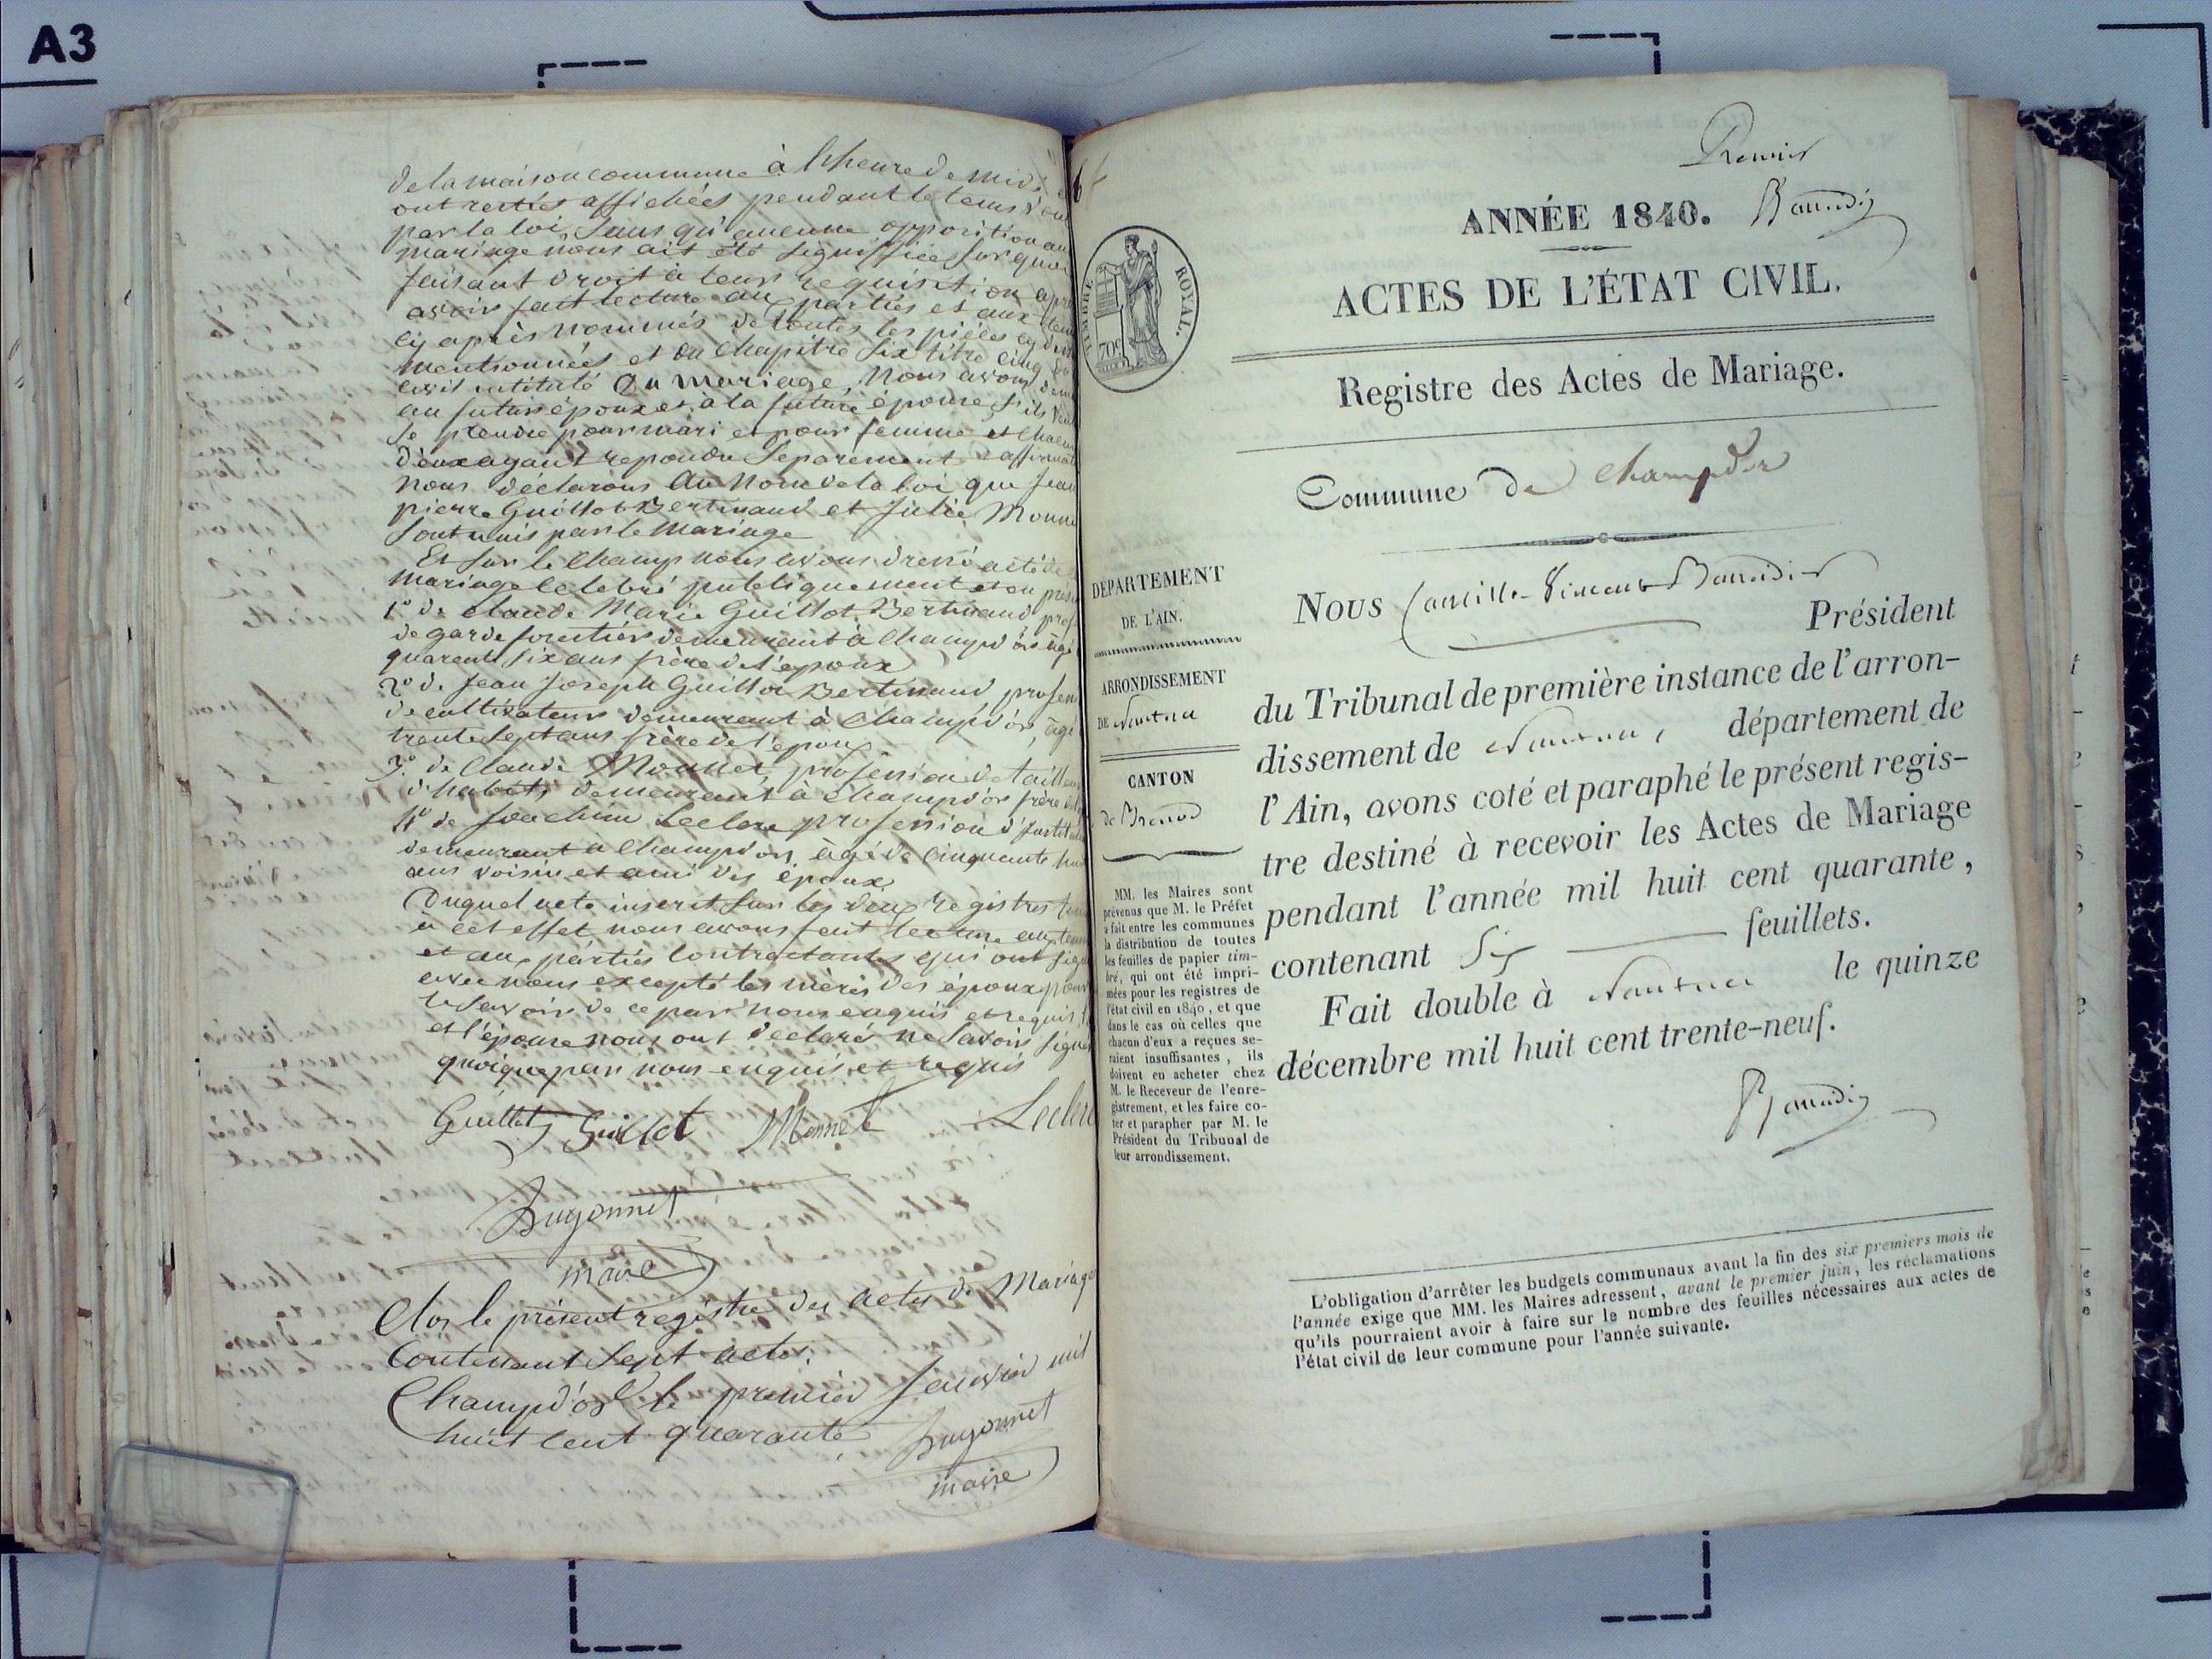 A3
de la maison commune à l'heure de midi
ont restées affichées pendant le tems
par la loi, sans qu'aucune opposition au
mariage nous ait été signiffiée, sur quoi
faisant droit à leur requisition
avoir fait lecture aux parties et aux
cy après nommés de toutes les pièces cy
mentionnées et du chapitre six titre cinq
civil intitulé du mariage, nous avons
au futur époux et à la future épouse s'ils
se prendre pour mari et pour femme et chacun
d'eux ayant repondu separement
nous déclarons au nom de la loi que Jean
pierre Guillot Bertinand et Julie
sont unis par le mariage
Et sur le champ nous avons dressé acte
mariage celebré publiquement et en
1º de Claude Marie Guillot Bertinand
de garde forestier demeurant à Champd'or
quarante six ans frère de l'époux
2º de Jean Joseph Guillot Bertinand
de cultivateur demeurant à Champd'or
trente sept ans frère de l'époux
3º de Claude Monnet, profession de
d'habits demeurant à Champd'or frère
4º de Joachim Leclerc profession
demeurant à Champd'or, âgé de cinquante
ans voisin et ami des époux
Duquel acte inscrit sur les deux registres
à cet effet nous avons fait lecture
et aux parties contractantes qui ont
avec nous excepté les mères des époux
le savoir de ce par nous enquis et
et l'épouse nous ont declaré ne savoir
quoique par nous enquis et requis
Guillot Guillot Monnet Leclerc
Bugonnet
maire
Clos le présent registre des actes de Mariage
contenant sept actes.
Champd'or le premier Janvier mil
huit cent quarante Bugonnet
maire
6
Premier
Baudin
TIMBRE ROYAL.
70c
ANNÉE 1840.
ACTES DE L'ÉTAT CIVIL.
Registre des Actes de Mariage.
Commune de Champdor
DÉPARTEMENT
DE L'AIN.
ARRONDISSEMENT
DE Nantua
CANTON
de Brenod
MM. les Maires sont
prévenus que M. le Préfet
a fait entre les communes
la distribution de toutes
les feuilles de papier tim-
bré, qui ont été impri-
mées pour les registres de
l'état civil en 1840, et que
dans le cas où celles que
chacun d'eux a reçues se-
raient insuffisantes, ils
doivent en acheter chez
M. le Receveur de l'enre-
gistrement, et les faire co-
ter et parapher par M. le
Président du Tribunal de
leur arrondissement.
Nous Camille Vincent
Président
du Tribunal de première instance de l'arron-
dissement de Nantua, département de
l'Ain, avons coté et paraphé le présent regis-
tre destiné à recevoir les Actes de Mariage
pendant l'année mil huit cent quarante,
contenant Six feuillets.
Fait double à Nantua le quinze
décembre mil huit cent trente-neuf.
L'obligation d'arrêter les budgets communaux avant la fin des six premiers mois de
l'année exige que MM. les Maires adressent, avant le premier juin, les réclamations
qu'ils pourraient avoir à faire sur le nombre des feuilles nécessaires aux actes de
l'état civil de leur commune pour l'année suivante.